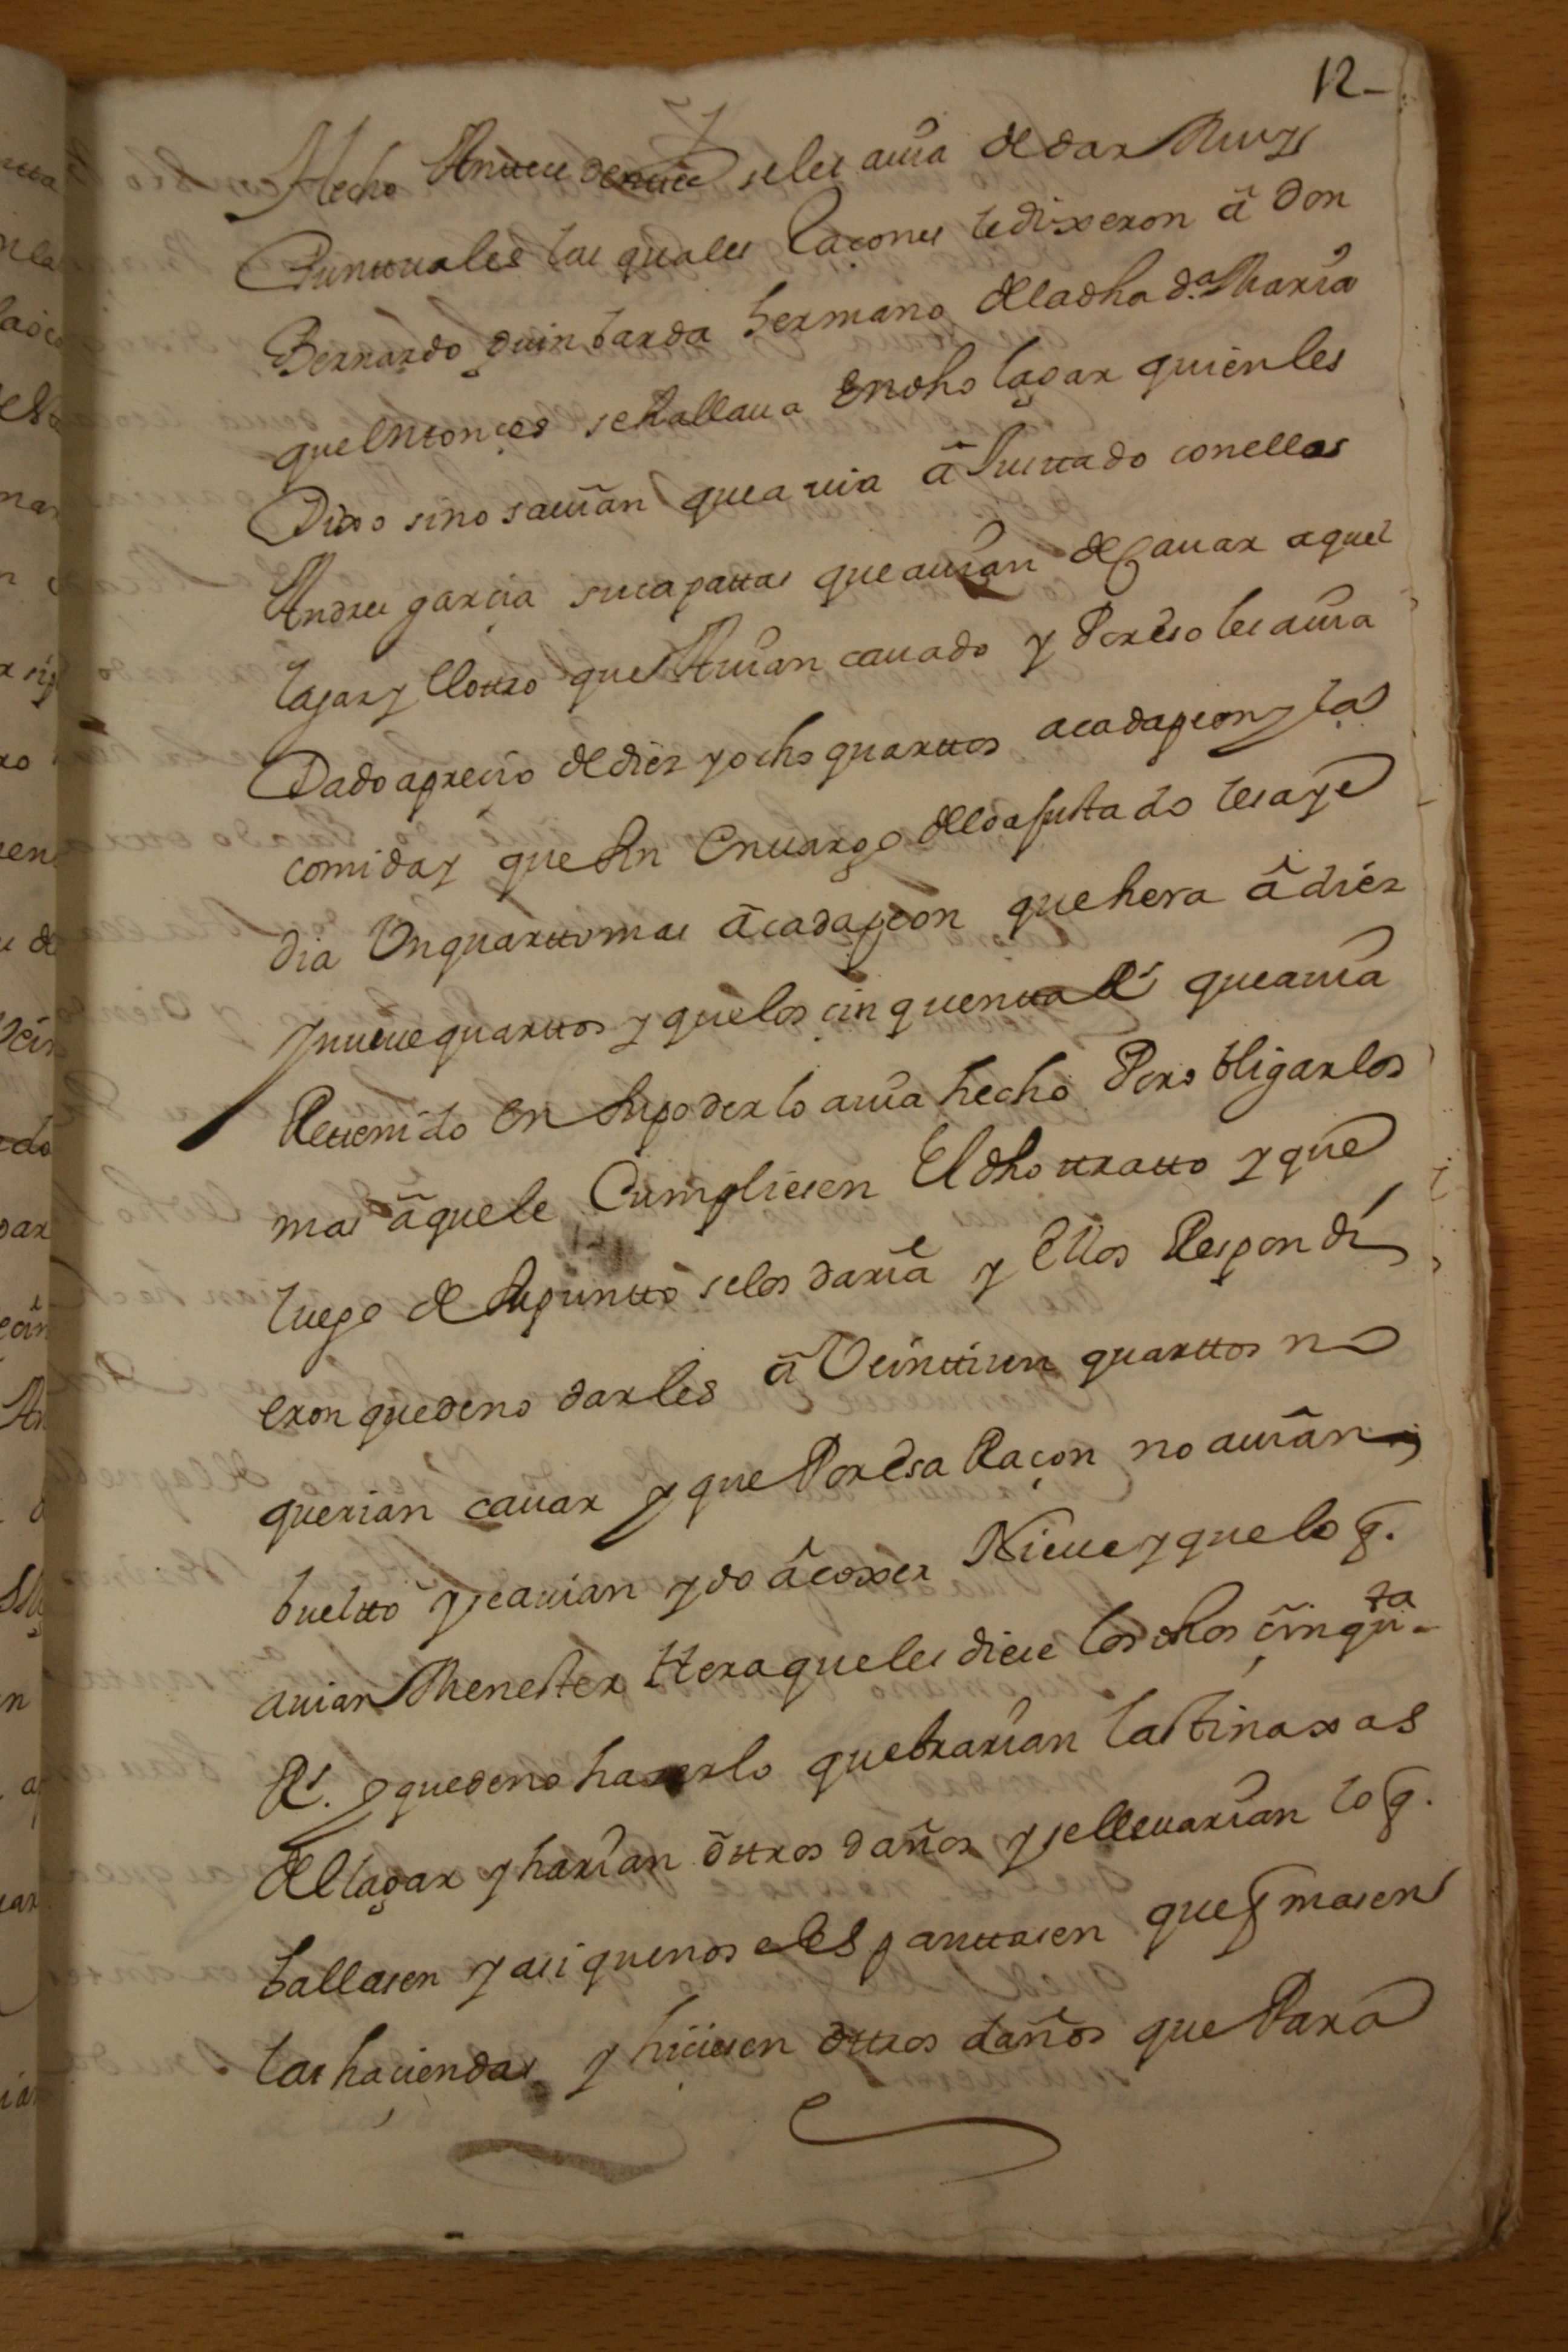 12
Hecho Antteu se les auia de dar Muy
Punttuales las quales raçones le dixeron â Don
Bernardo quintarda hermano de la dha d.ª Maria
que entonçes se hallaua en dho lagar quien les
Dixo sino sauian que auia âJustado con ellos
Andres garçia su capattas que auian de cauar aquel
lagar y el ottro que Auian cauado y Por eso les auia
Dado a preçio de diez y ocho quarttos a cada peon y la
comida y que sin envargo de lo ajustado les aye
dia Un quartto mas â cada peon que hera â diez
y nueue quarttos y que los çinquentta Rˢ que auia
Rettenido en su poder lo auia hecho Por obligarlos
mas â que le Cumpliesen El dho ttratto y que
luego de su puntto se los daria y Ellos Respondi
eron que de no darles â Veinttiun quarttos no
querian cauar y que Por esa Raçon no auian
buelto y se auian ydo â coxer Nieue y que lo q̃.
auian Menester Hera que les diese los dhos çinqᵗᵃ
Rˢ. y que de no hacerlo quebrarian las tinaxas
del lagar y harian ôttros daños y se lleuarian lo q̃.
ballasen y asi que no se les panttasen que q̃masen
las haçiendas y hiçiesen ôttros daños que Para